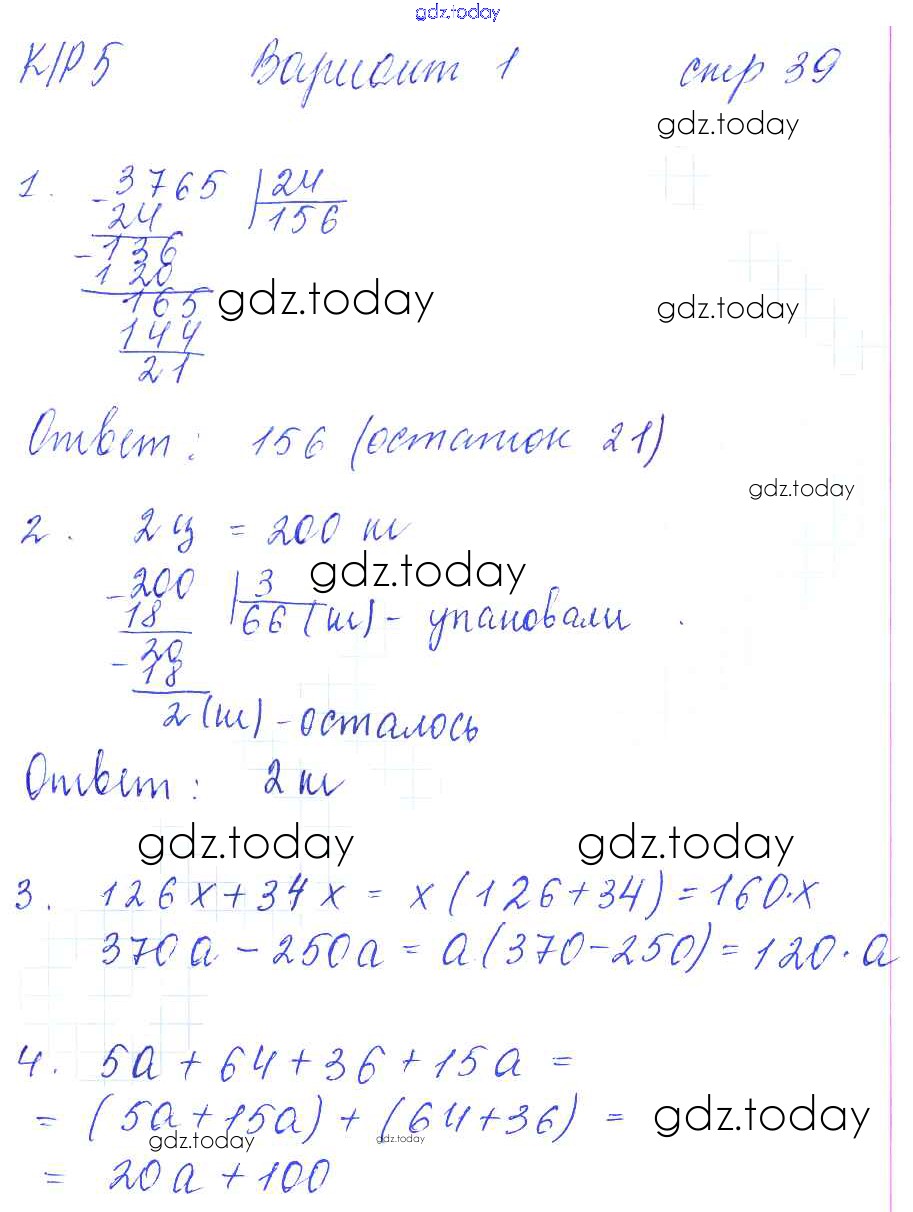 gdz.today
К/Р 5 Вариант 1 стр 39
gdz.today
1. - 3765 | 24
24 | 156
- 136
120
gdz.today
gdz.today
165
144
21
Ответ: 156 (остаток 21)
gdz.today
2. 2 ц = 200 кг
gdz.today
- 200 | 3
18 | 66 (кг) - упаковали
- 20
18
2 (кг) - осталось
Ответ: 2 кг
gdz.today gdz.today
3. 126x + 34x = x(126+34) = 160·x
370a - 250a = a(370-250) = 120·a
4. 5a + 64 + 36 + 15a =
= (5a+15a) + (64+36) =
gdz.today
gdz.today gdz.today
= 20a + 100